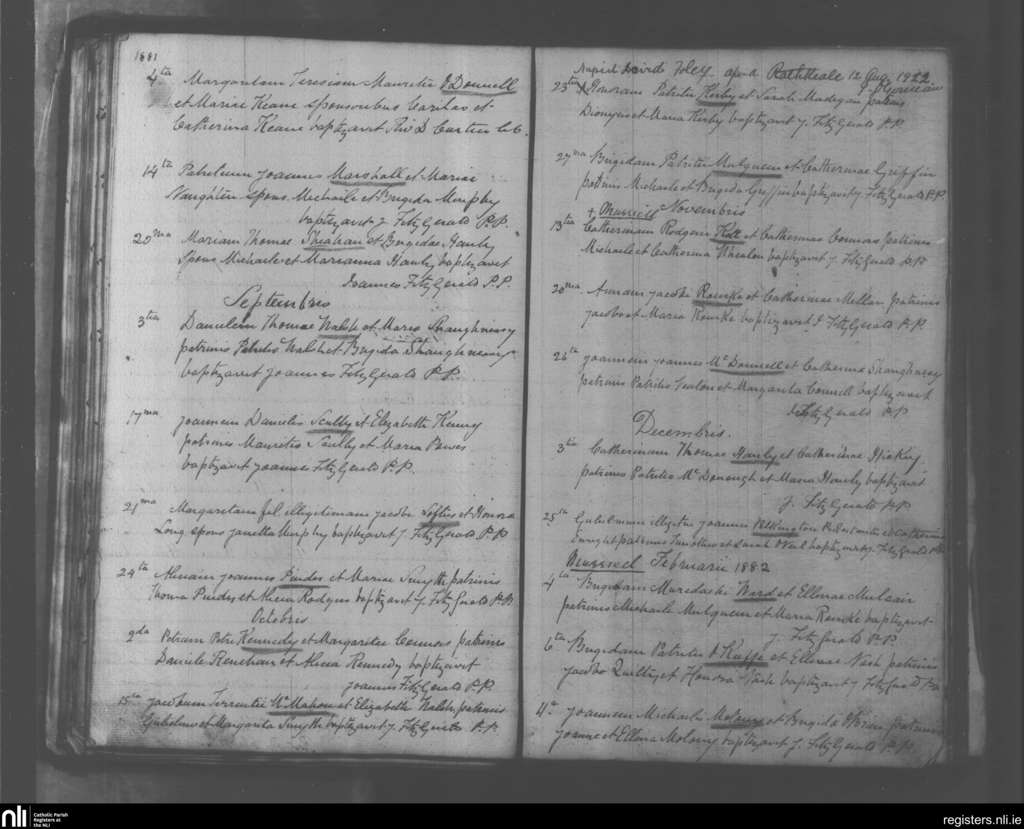 1881
4ta Margaritam Teresiam Mauritii O'Donnell
et Mariae Keane sponsoribus Caritas et
Catherina Keane baptizavit Rev D Curtin C.C.
14ta Patricium Joannes Marshall et Mariae
Naughten spons Michaele et Brigida Murphy
baptizavit J. FitzGerald P.P.
20ma Mariam Thomae Sheahan et Brigidae Hanly
Spons Michaele et Marianna Hanly baptizavit
Joannes FitzGerald P.P.
Septembris
3tia Danielem Thomae Walsh et Maria Shaughnessy
patrinis Patritio Walsh et Brigida Shaughnessy
baptizavit Joannes FitzGerald P.P.
17ma Joannem Danielis Scully et Elizabeth Kenny
patrinis Mauritio Scully et Maria Power
baptizavit Joannes FitzGerald P.P.
21ma Margaritam fil illegitimam Jacobi Loftus et Honora
Long spons Janetta Murphy baptizavit J. FitzGerald P.P.
24ta Alinam Joannes Purdes et Mariae Smyth patrinis
Thoma Purdes et Alicia Rodgers baptizavit J. FitzGerald P.P.
Octobris
2da Petrum Petri Kennedy et Margaritae Connors patrinis
Daniele Renehan et Alicia Kennedy baptizavit
Joannes FitzGerald P.P.
15ta Jacobum Terrentii McMahon et Elizabetha Walsh patrinis
Gulielmo et Margarita Smyth baptizavit J. FitzGerald P.P.
Nupsit David Foley apud Rathkeale 12 Aug 1922
23tia X Honoram Patritii Kirby et Sarah Madigan patrinis
Dionysio et Maria Kirby baptizavit J. FitzGerald P.P.
27ma Brigidam Patritii Mulqueen et Catherinae Griffin
patrinis Michaele et Brigida Griffin baptizavit J. FitzGerald P.P.
+ Married Novembris
13tia Catherinam Rodgeri Holt et Catherinae Connors patrinis
Michaele et Catherina Whealon baptizavit J. FitzGerald P.P.
20ma Annam Jacobi Rourke et Catherinae Millan patrinis
Jacobo et Maria Rourke baptizavit J FitzGerald P.P.
26ta Joannem Joannes McDonnell et Catherina Shanghnessy
patrinis Patritio Scalon et Margarita Connell baptizavit
J. FitzGerald P.P.
Decembris.
3tia Catherinam Thomae Hanly et Catherinae Hickey
patrinis Patritio McDonough et Maria Hanly baptizavit
J. FitzGerald P.P.
25ta Gulielmum illegitm Joannes Pilkington Protestantis et Catherina
Enright patrinis Timotheo et Sarah O'Neil baptizavit J. FitzGerald P.P.
Married Februarii 1882
4ta Brigidam Maredachi Ward et Ellenae Mulcair
patrinis Michaele Mulqueen et Maria Rourke baptizavit
J. FitzGerald P.P.
6ta Brigidam Patritii O'Keeffe et Ellenae Nash patrinis
Jacobo Quilty et Honora Nash baptizavit J. FitzGerald P.P.
11a Joannem Michaelis Molony et Brigida O'Brien patrinis
Joanne et Ellena Molony baptizavit J. FitzGerald P.P.
nli Catholic Parish
Registers at
the NLI
registers.nli.ie